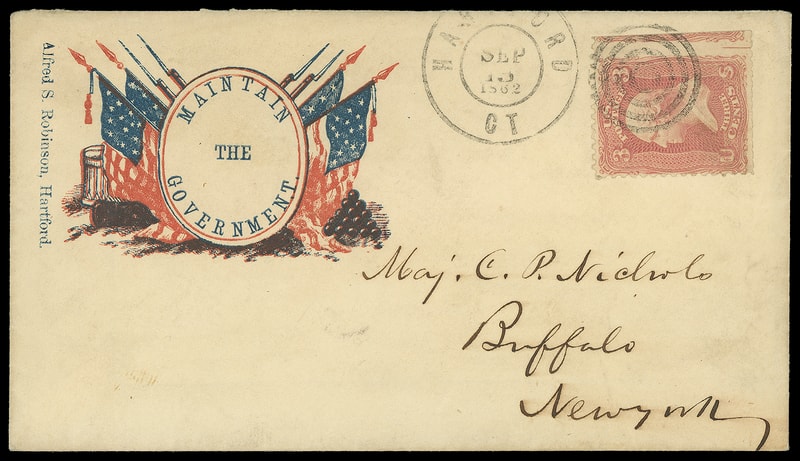 Alfred S. Robinson, Hartford.
MAINTAIN
THE
GOVERNMENT.
HARTFORD
SEP
13
1862
CT
3
3
Maj. C. P. Nichols
Buffalo
Newyork